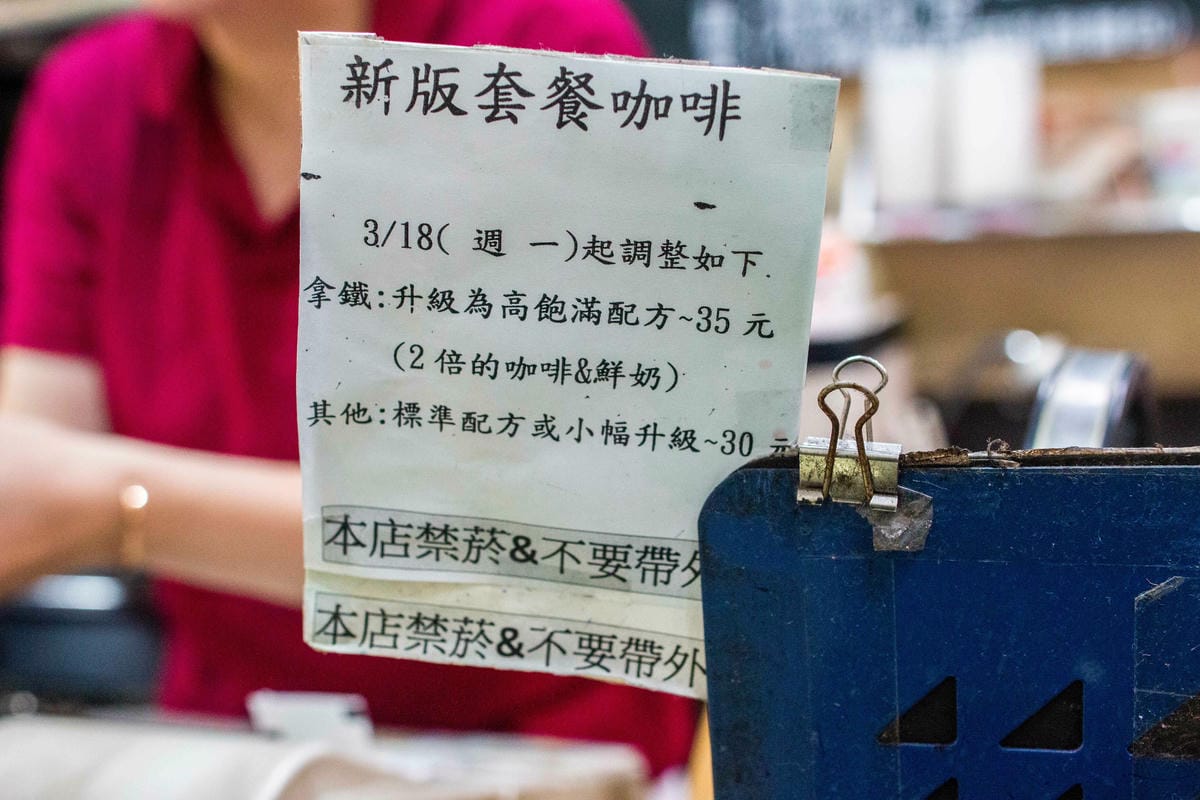 新版套餐咖啡
3/18( 週 一)起調整如下.
拿鐵:升級為高飽滿配方~35 元
(2 倍的咖啡&鮮奶)
其他:標準配方或小幅升級~30 元
本店禁菸&不要帶外
本店禁菸&不要帶外